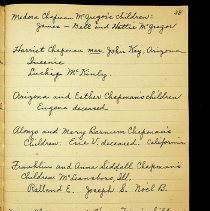 48
Medora Chapman McGregor's children:
James - Nell and Hattie McGregor
Harriet Chapman mar. John Key, Arizona
Susanne
Luckey McKinly.
Arizona and Esther Chapman's children
Eugene deceased
Alonzo and Mary Barnum Chapman's
Children: Eric V. deceased. California
Franklin and Anna Siddall Chapman's
Children McLeansboro, Ill.
Rolland E. Joseph S. Noel B.